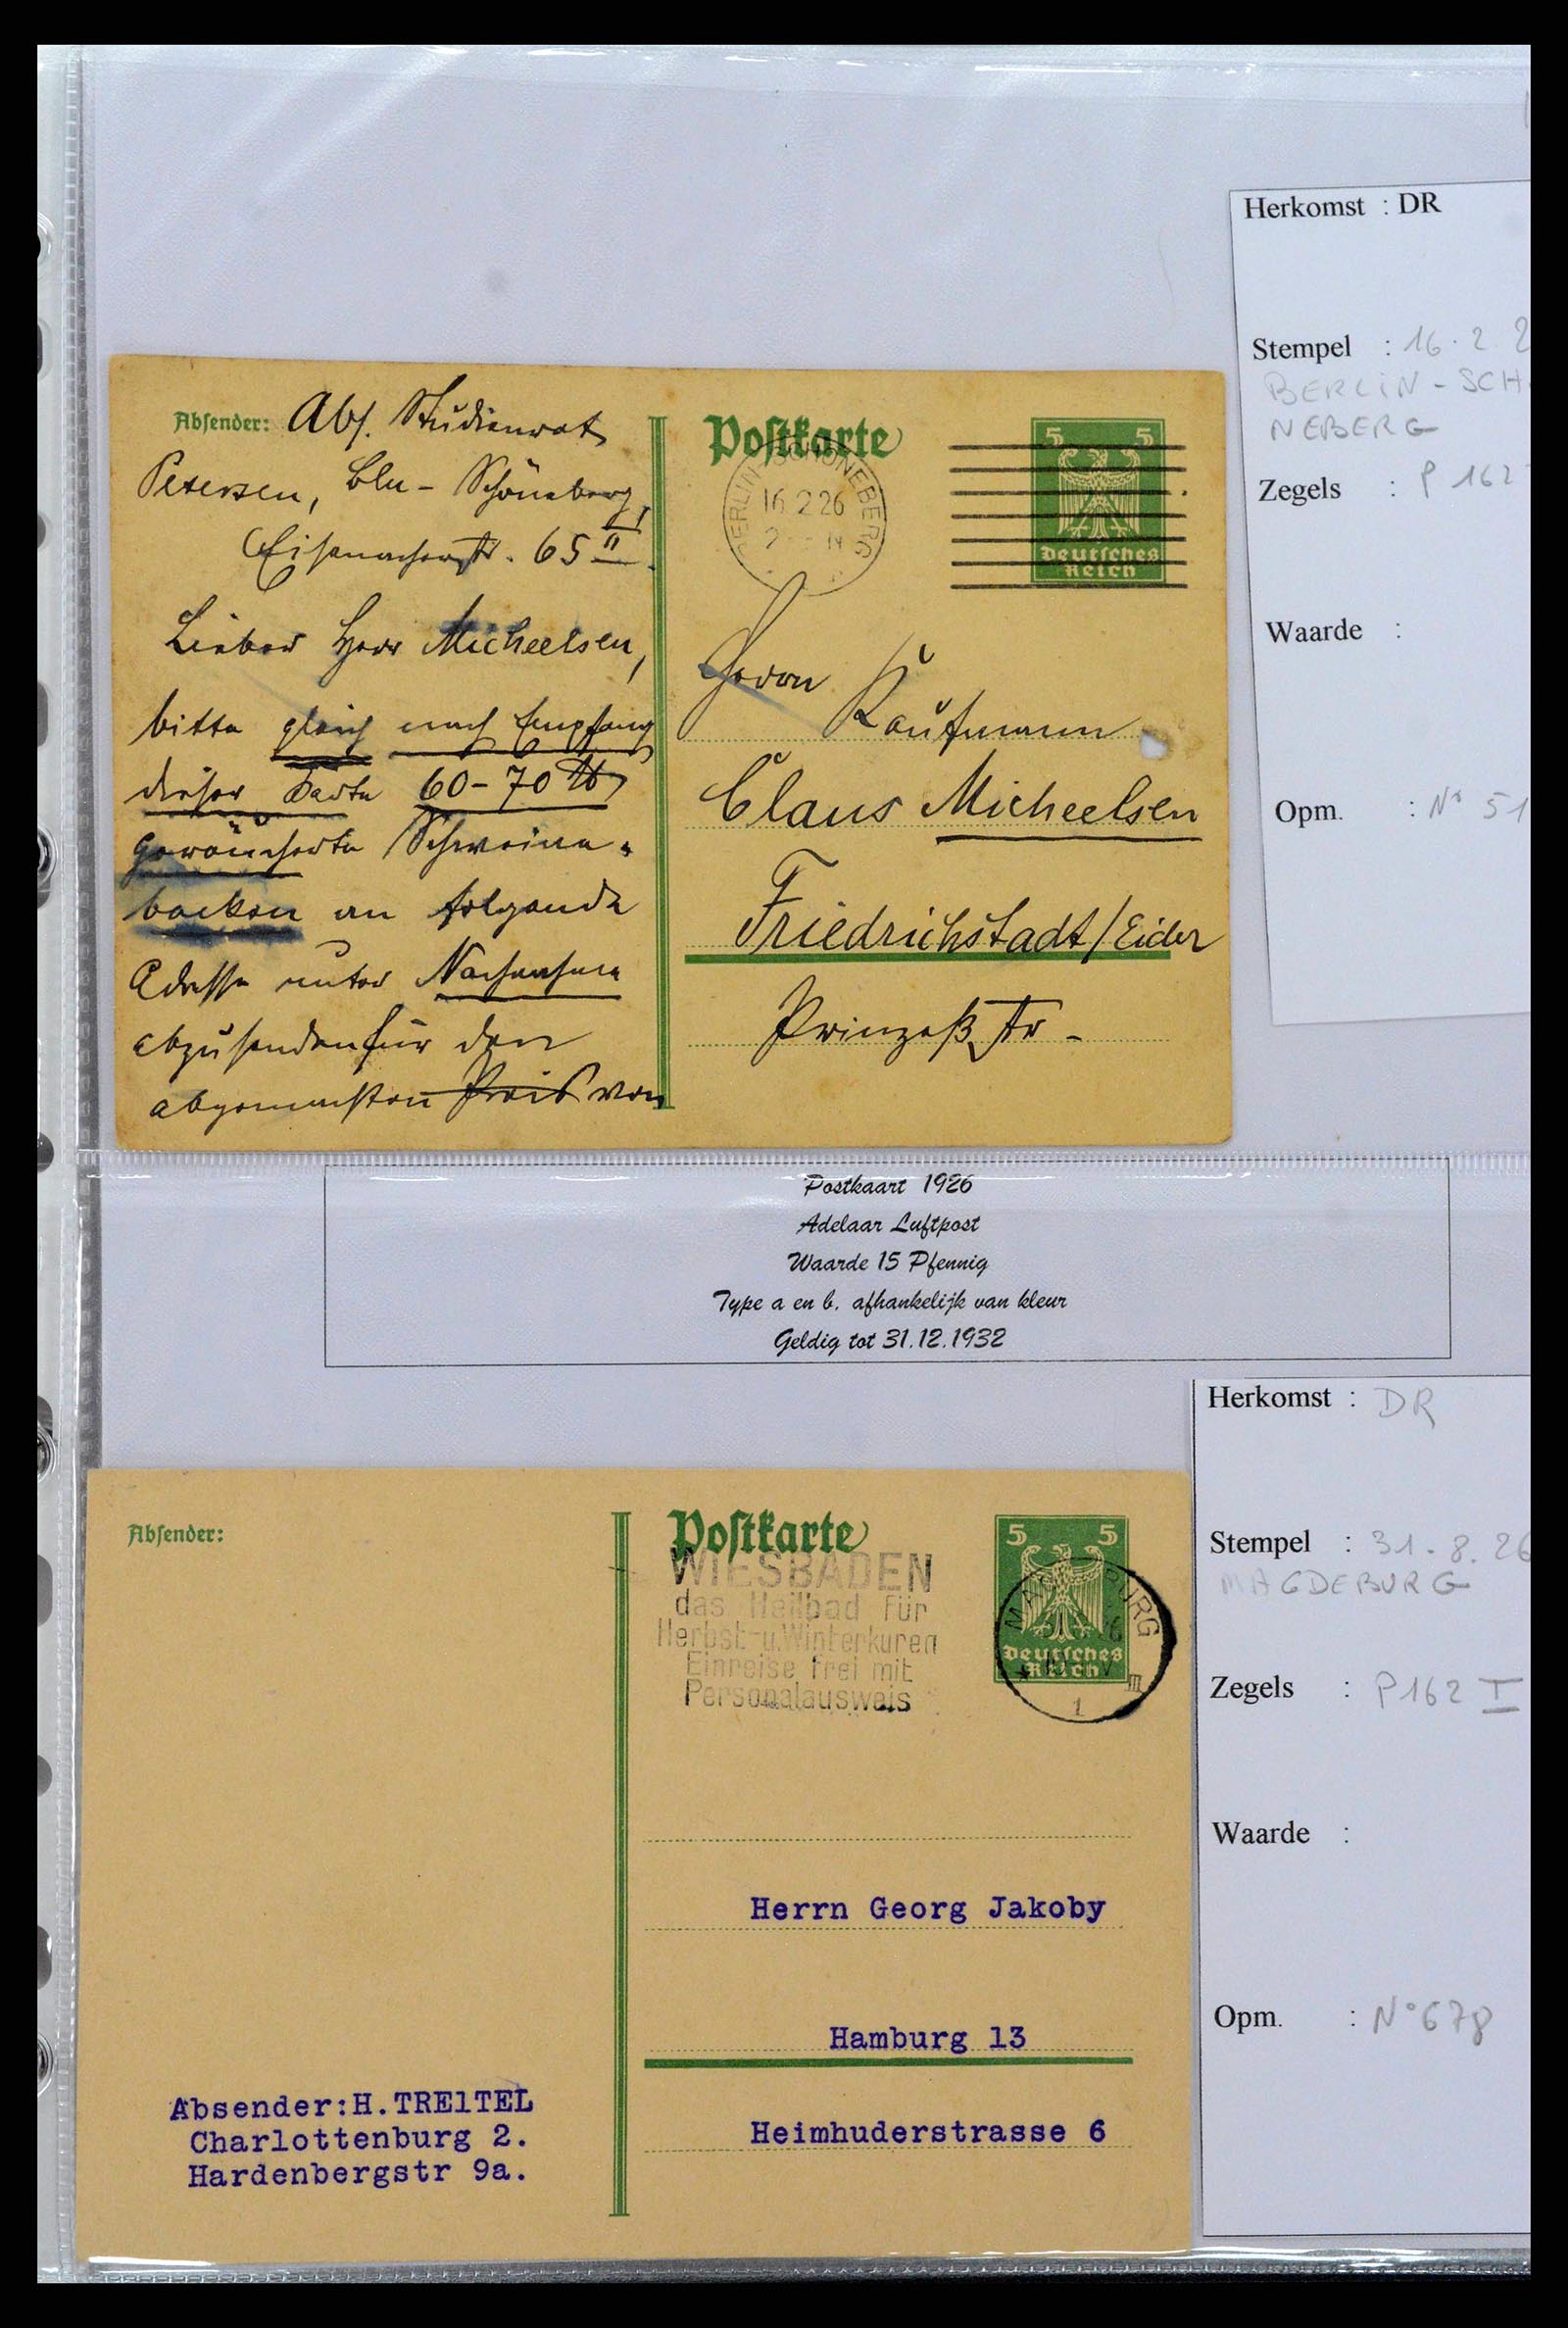 Herkomst : DR
Stempel : 16.2.2
BERLIN-SCH
NEBERG
Zegels : P 162
Waarde :
Opm. : N° 51
Absender: Abs. Studienrat
Petersen, Bln-Schöneberg,
Eisenacherstr. 65 II
Lieber Herr Micheelsen,
bitte gleich nach Empfang
dieser Karte 60-70 ℔
geräucherte Schweine-
backen an folgende
Adresse unter Nachnahme
abzusenden für den
abgemachten Preis von
Postkarte
BERLIN-SCHÖNEBERG
16.2.26
2 - N
5 5
Deutsches
Reich
Herrn
Kaufmann
Claus Micheelsen
Friedrichstadt/Eider
Prinzeßstr-
Postkaart 1926
Adelaar Luftpost
Waarde 15 Pfennig
Type a en b, afhankelijk van kleur
Geldig tot 31.12.1932
Herkomst : DR
Stempel : 31.8.26
MAGDEBURG
Zegels : P162 I
Waarde :
Opm. : N°678
Absender:
Postkarte
WIESBADEN
das Heilbad für
Herbst-u.Winterkuren
Einreise frei mit
Personalausweis
5 5
Deutsches
Reich
MAGDEBURG
1
Herrn Georg Jakoby
Hamburg 13
Heimhuderstrasse 6
Absender:H.TRE1TEL
Charlottenburg 2.
Hardenbergstr 9a.